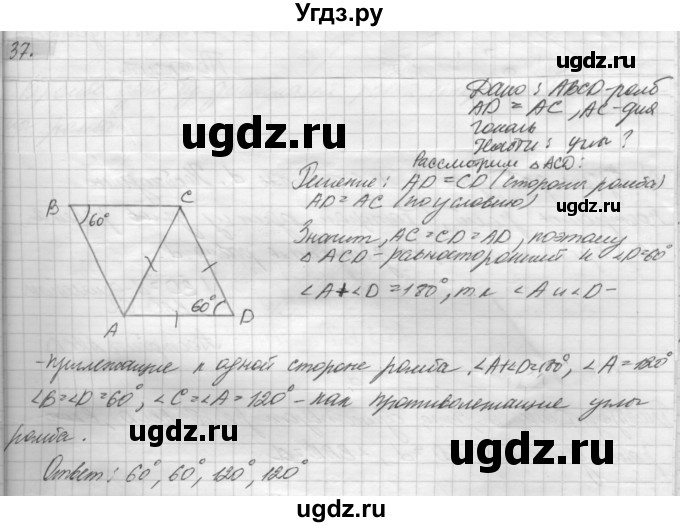 Угдз.ру
37.
Дано: ABCD-ромб
AD = AC, AC-диа
гональ
Найти: углы?
Рассмотрим △ACD:
Решение: AD=CD (стороны ромба)
AD=AC (по условию)
Значит, AC=CD=AD, поэтому
△ACD-равносторонний и ∠D=60°
∠A+∠D=180°, т.к ∠A и ∠D-
B
C
60°
60°
A
D
-прилежащие к одной стороне ромба. ∠A+∠D=180°, ∠A=120°
∠B=∠D=60°, ∠C=∠A=120°-как противолежащие углы
ромба.
Ответ: 60°, 60°, 120°, 120°
ugdz.ru
ugdz.ru
ugdz.ru
ugdz.ru
ugdz.ru
ugdz.ru
Угдз.ру